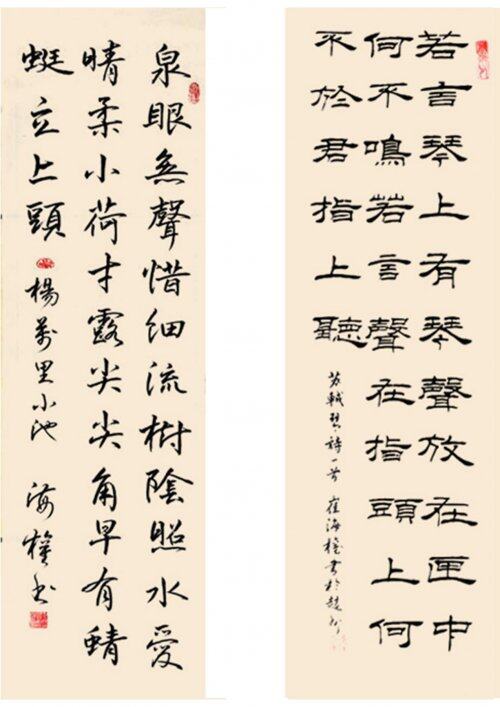 若言琴上有琴聲放在匣中
何不鳴若言聲在指頭上何
不於君指上聽
蘇軾琴詩一首 崔海權書於
泉眼無聲惜細流樹陰照水愛
晴柔小荷才露尖尖角早有蜻
蜓立上頭 楊萬里小池 海權書